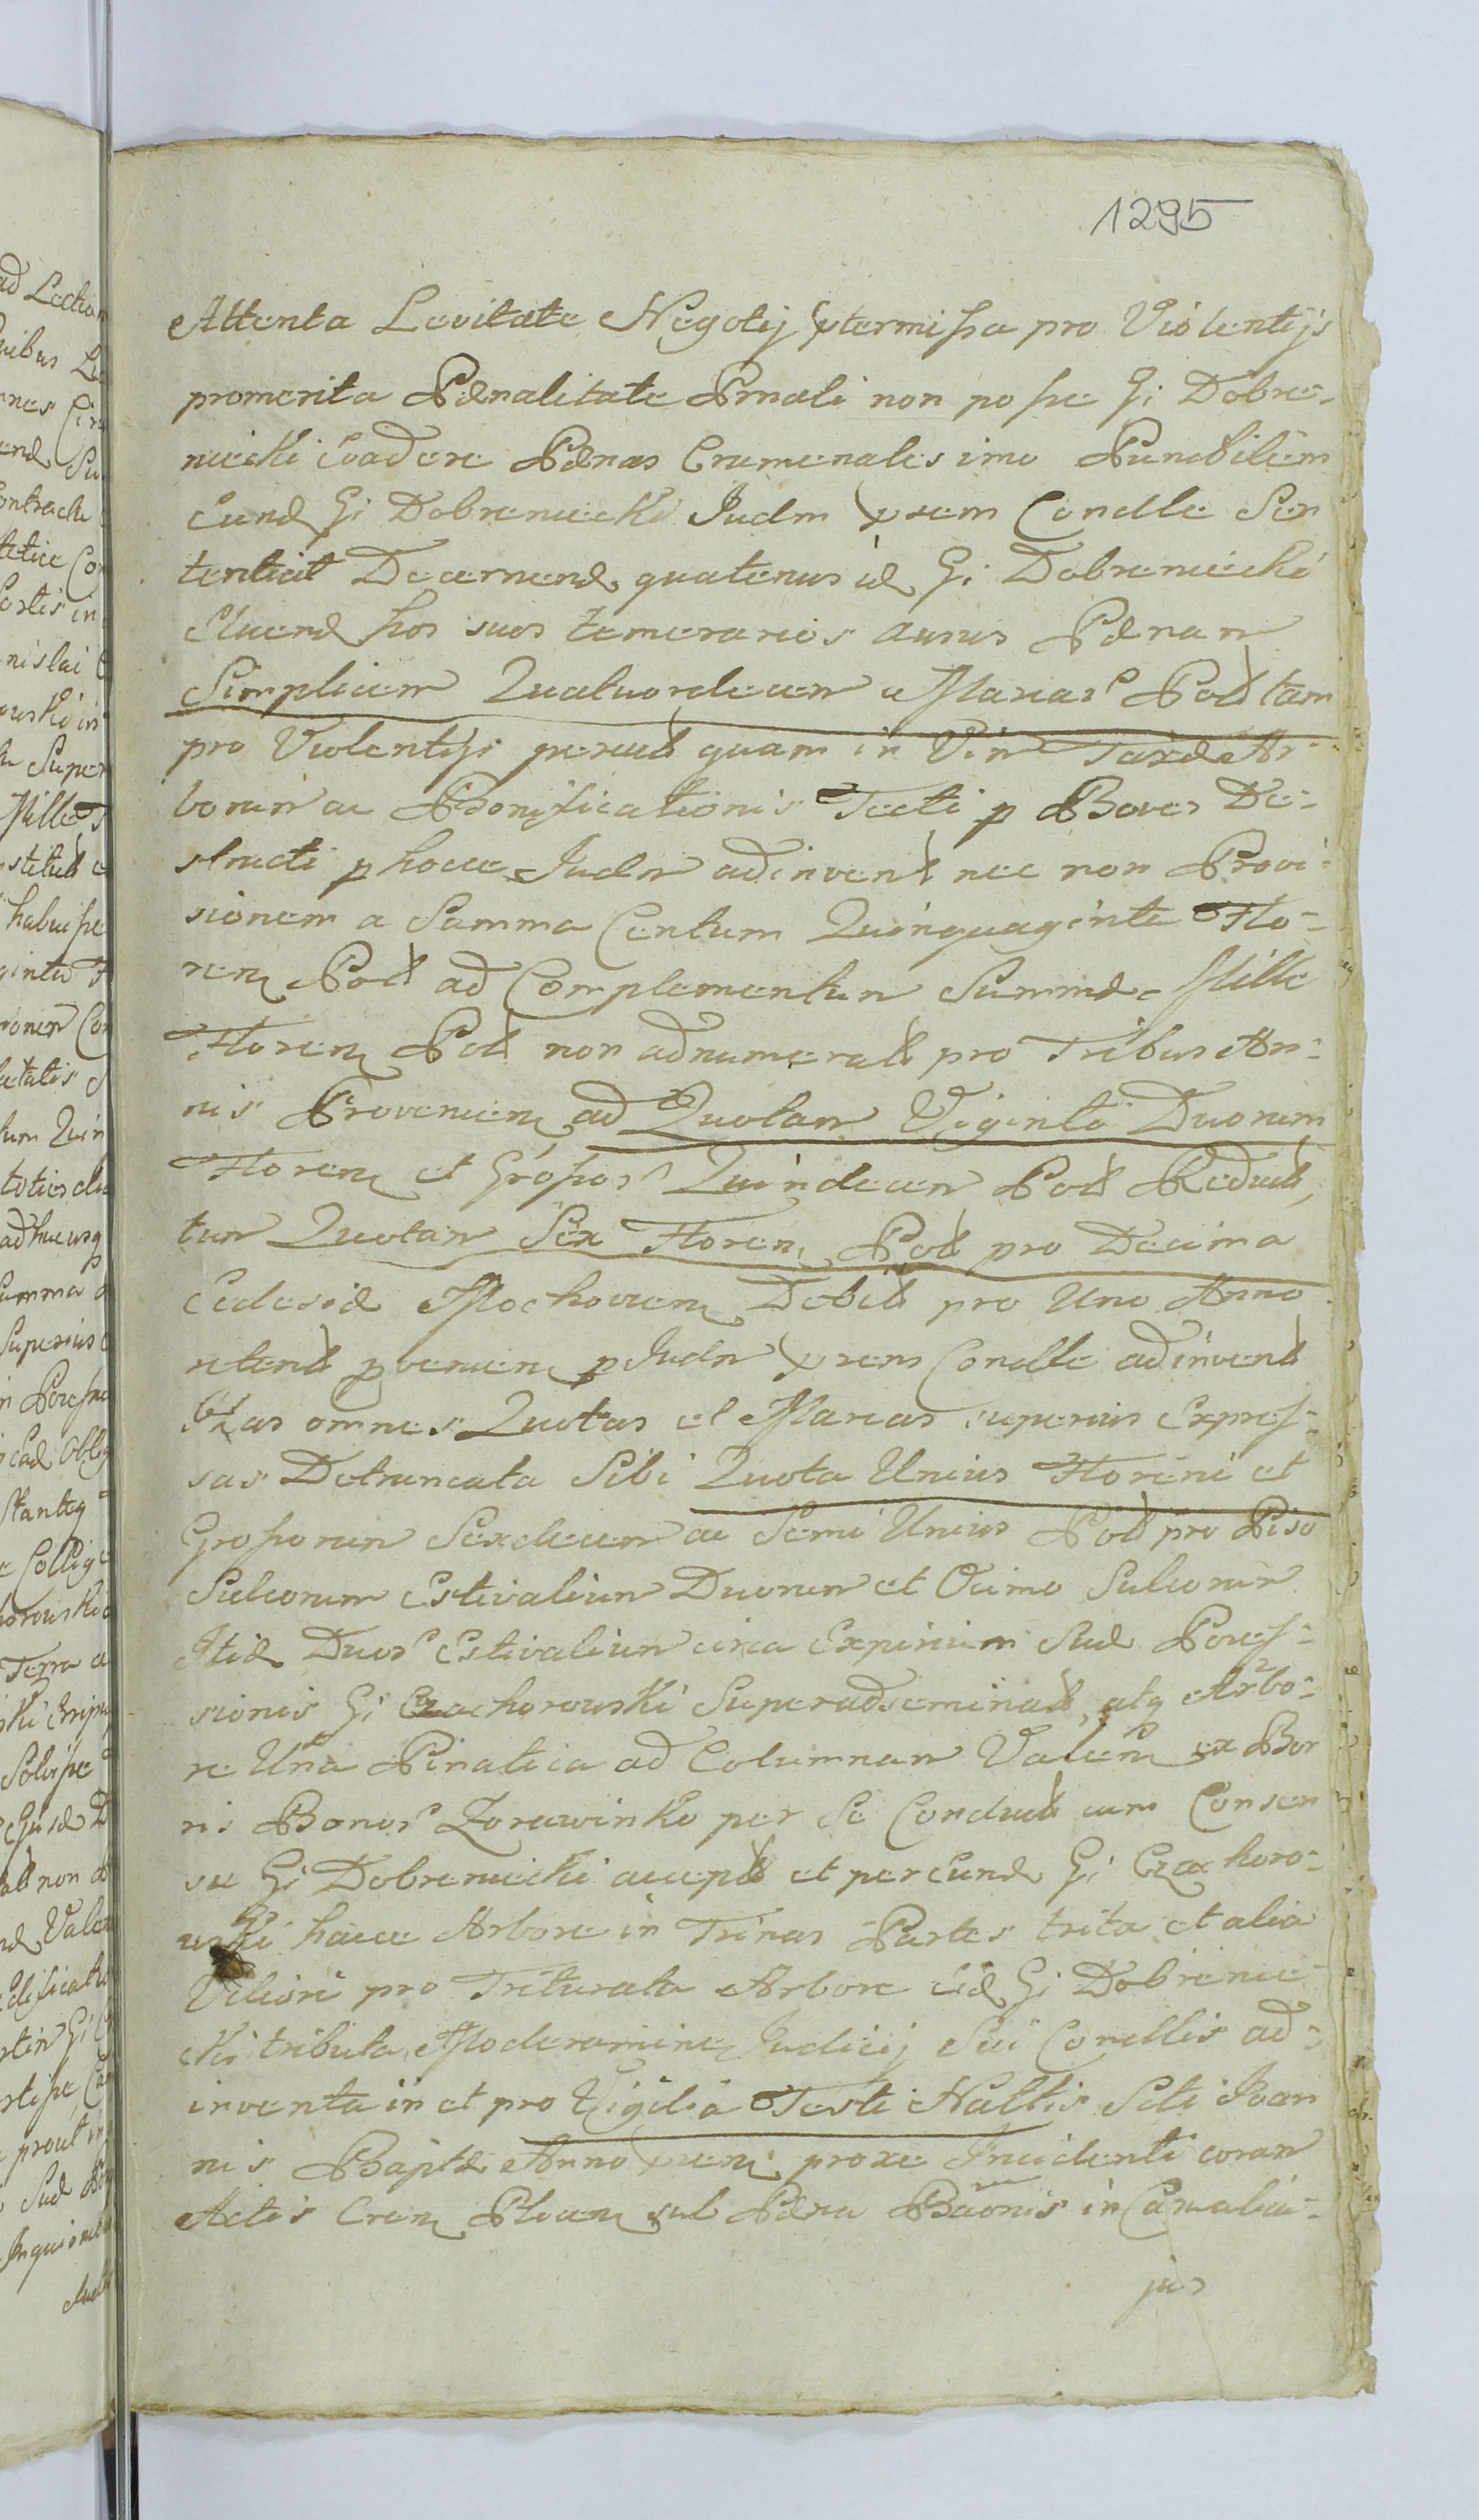 1295
Attenta Levitate Negotij ptermissa pro Violentijs
promerita Pænalitate Prnali non posse Gi Dobre-
niecki Evadere Pænas Crumenales imo Punibilem
Eund Gi Dobreniecki Judm prsem Condlle Sen
tentiat Decernend quatenus id Gi Dobreniecki
Eluend hos suos temerarios ausus Pænam
Simplicem Quatuordecem Marcar Pol tam
pro Violentijs quam in Vim Taxæ Ar-
borum ac Bonificationis Tecti p Boves De-
structi p hocce Judm adinvent nec non Provi-
sionem a Summa Centum Quinquaginta Flo-
ren Pol ad Complementum Summæ Mille
Floren Pol non adnumerat pro Tribus An-
nis Provenien ad Quotam Viginti Duorum
Floren et Grossos Quindecem Pol Reduct
tum Quotam Sex Floren Pol pro Decima
Eclesiæ Mochovien Debit pro Uno Anno
retent pvenien p Judm prsens Condlle adinvent
Has omnes Quotas et Marcas superius Expres-
sas Detruncata Sibi Quota Unius Floreni et
Grossorum Sexdecem ac Semi Unius Pol pro Piso
Sulcorum Estivalium Duorum et Ocimo Sulcorum
Itid Duor Estivalium circa Expirium Suæ Poses-
sionis Gi Czachorowski Superadseminat, atq Arbo-
re Una Pinatica ad Columnam Valen ex Bor
ris Bonor Zorawinko per Se Conduct cum Consen
su Gi Dobreniecki accept et per Eund Gi Czachoro-
wski hacce Arbore in Trinas Partes trita et alia
Viliori pro Triturata Arbore Eid Gi Dobrenie-
cki tributa, Moderamine Judicij Sui Condllis ad-
inventa in et pro Vigilia Festi Nattis Scti Joan
nis Baptæ Anno prsen proxe Incidenti coram
Actis Cren Plocen sub Pæna Baonis in Causalia-
jus